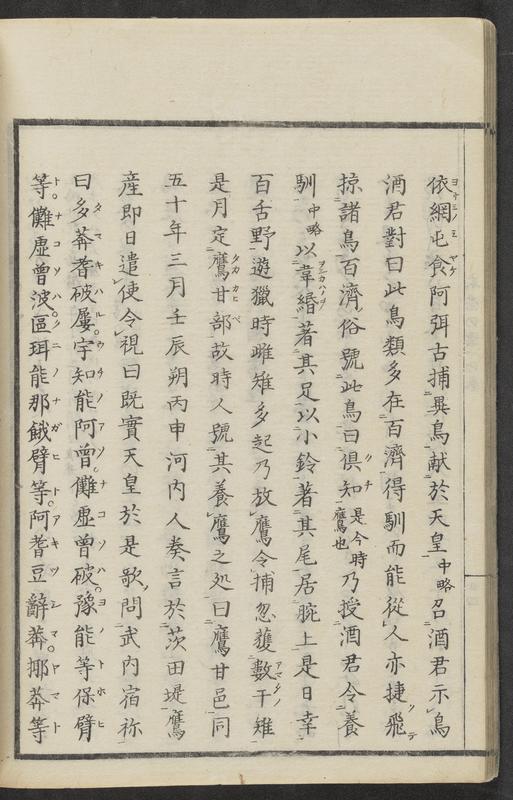 依網屯食阿弭古捕異鳥献於天皇中略召酒君示鳥
酒君對曰此鳥類多在百濟得馴而能從人亦捷飛
掠諸鳥百濟俗號此鳥曰倶知是今時鷹也乃授酒君令養
馴中略以韋緡著其足以小鈴著其尾居腕上是日幸
百舌野遊獵時雌雉多起乃放鷹令捕忽獲數十雉
是月定鷹甘部故時人號其養鷹之処曰鷹甘邑同
五十年三月壬辰朔丙申河内人奏言於茨田堤鷹
産即日遣使令視曰既實天皇於是歌問武内宿祢
曰多莽耆破屡宇知能阿曾儺虚曾破豫能等保臂
等儺虚曾波區珥能那餓臂等阿耆豆辭莽揶莽等